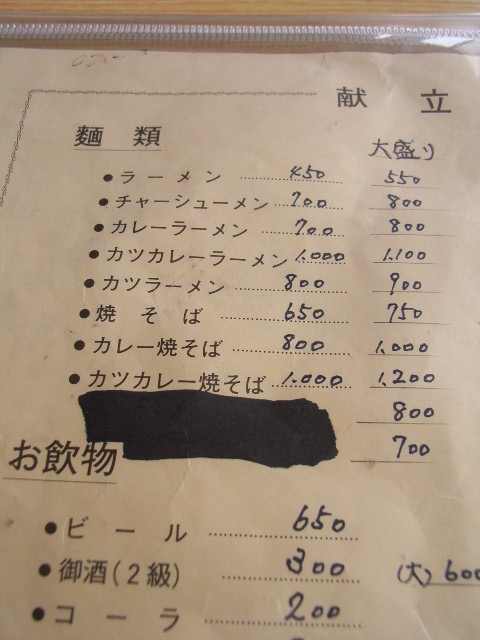 献立
麺類 大盛り
●ラーメン 450 550
●チャーシューメン 700 800
●カレーラーメン 700 800
●カツカレーラーメン 1.000 1.100
●カツラーメン 800 900
●焼そば 650 750
●カレー焼そば 800 1.000
●カツカレー焼そば 1.000 1.200
800
700
お飲物
●ビール 650
●御酒(2級) 300 (大)600
●コーラ 200